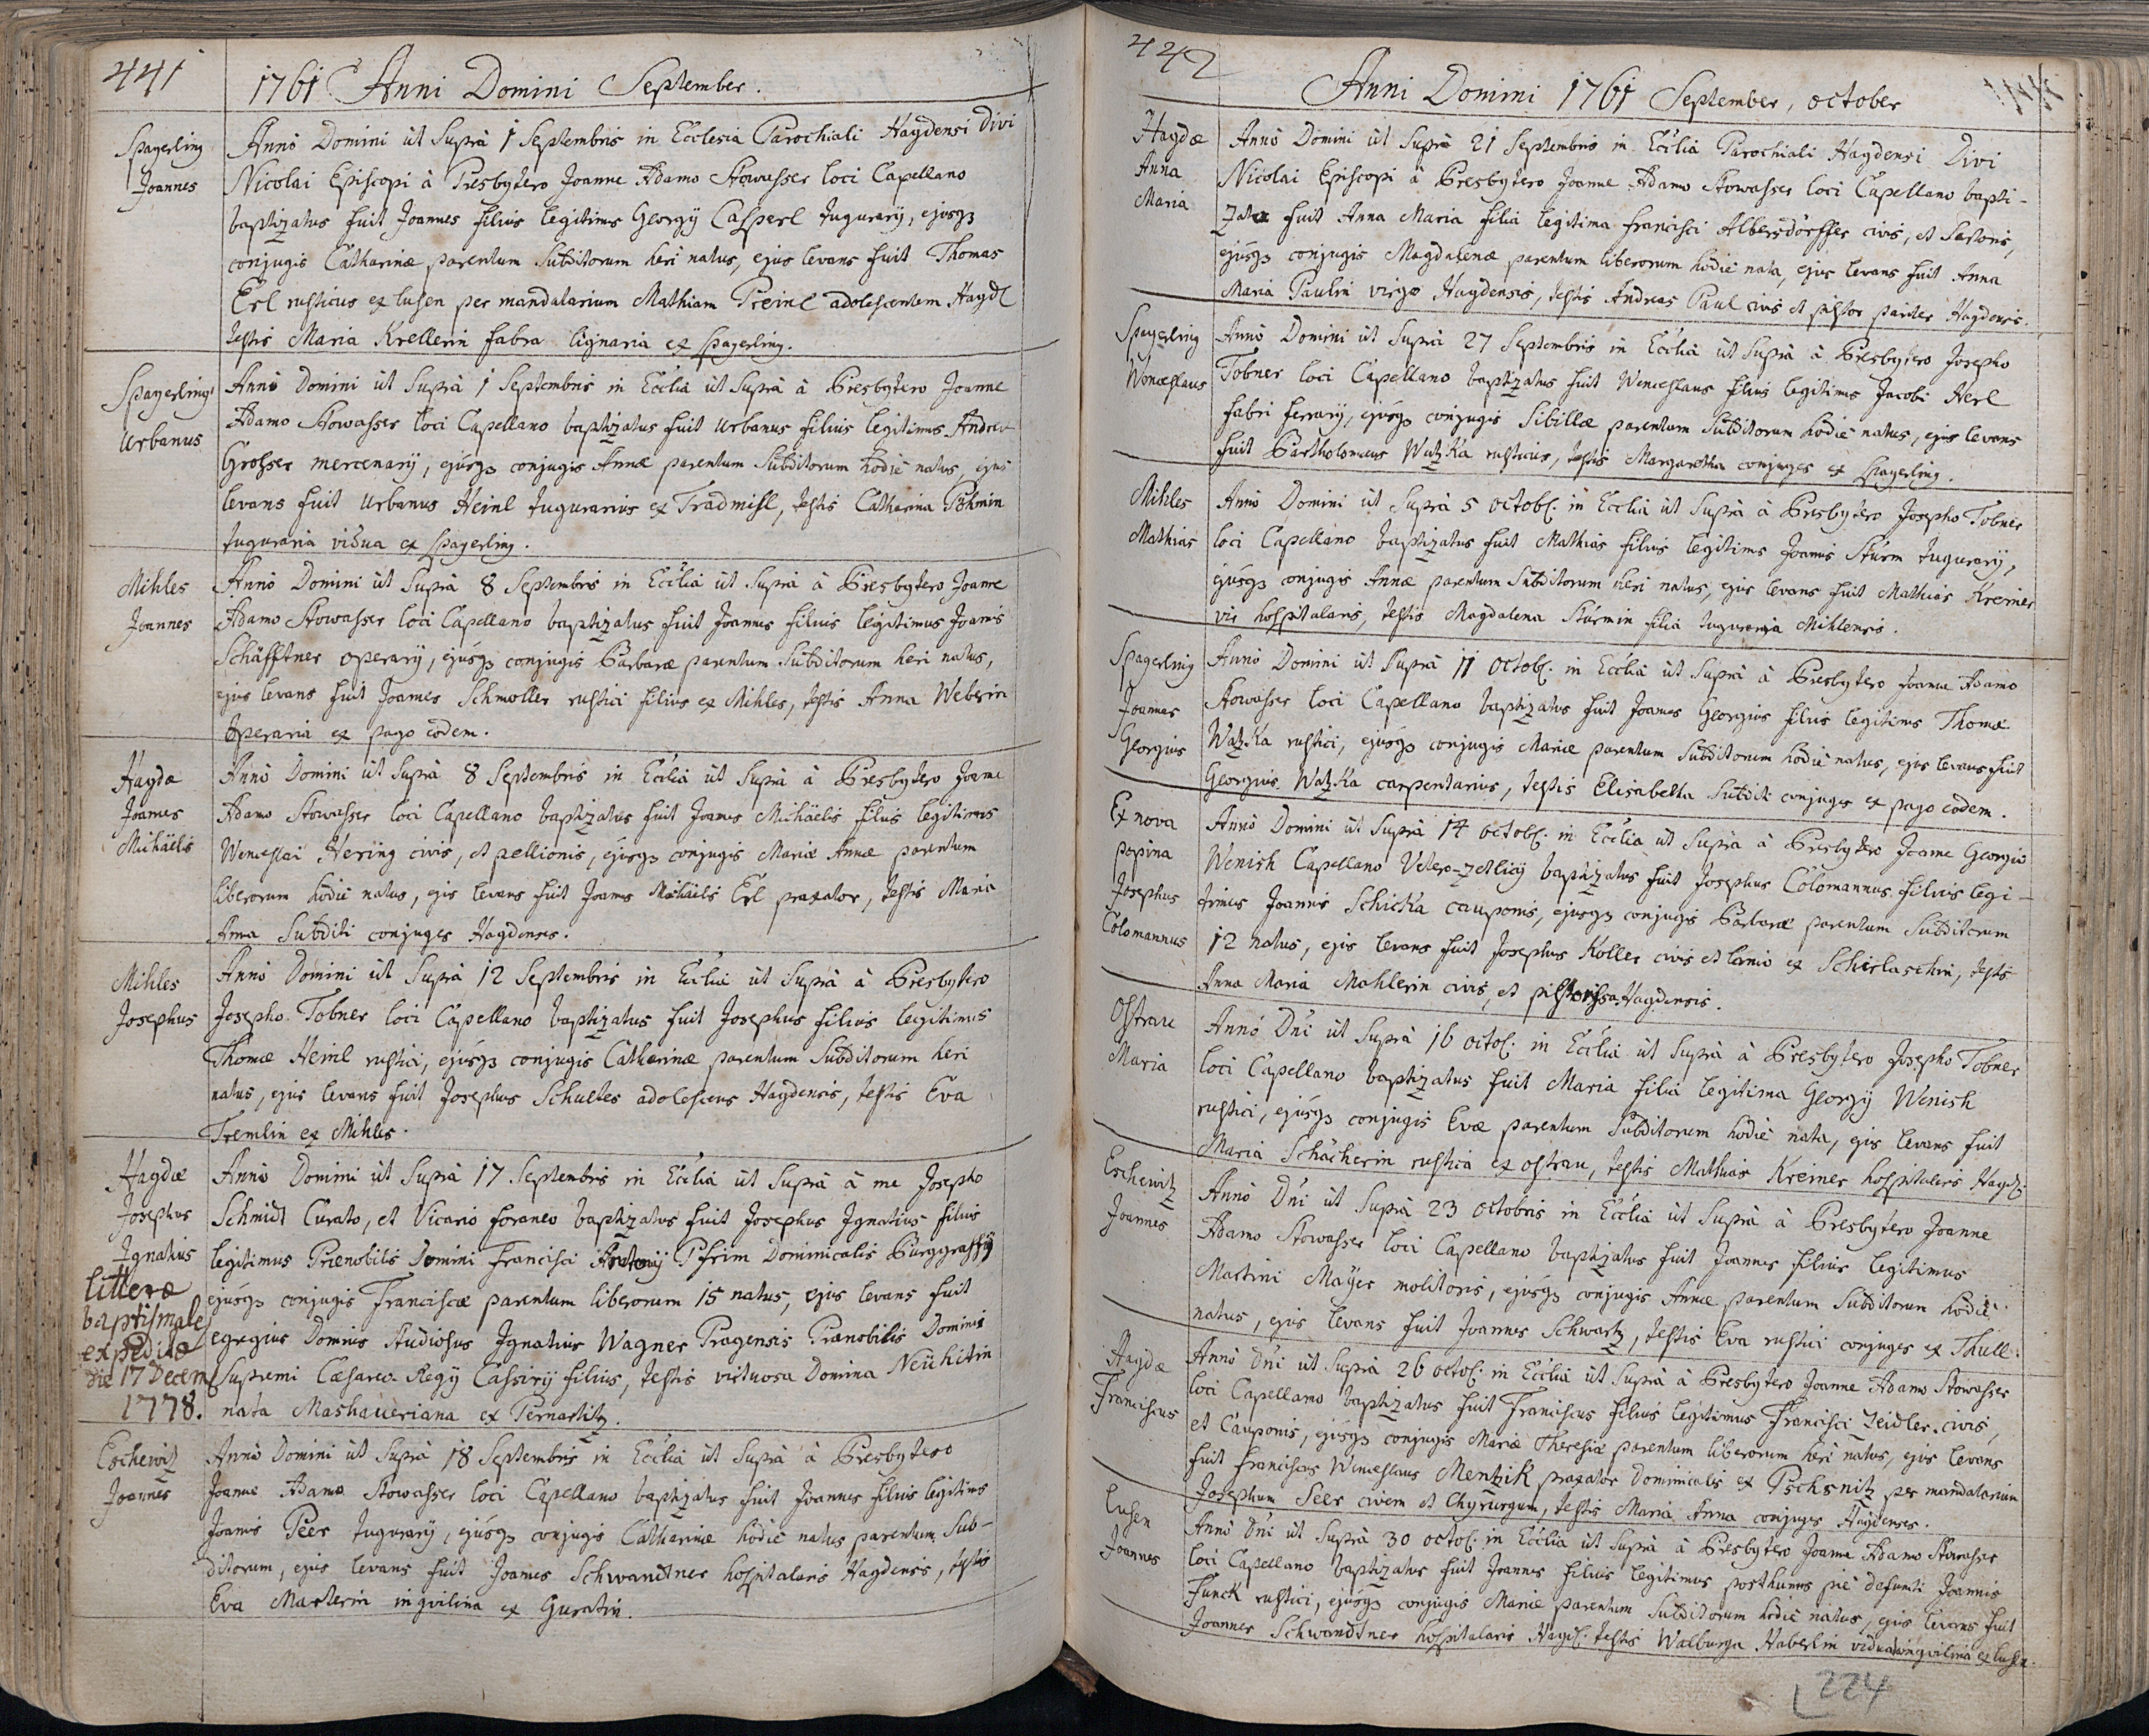 441
1761 Anni Domini September.
Spagerling
Joannes
Anno Domini ut Suprà 1 Septembris in Ecclesia Parochiali Haydensi Divi
Nicolai Episcopi à Presbytero Joanne Adamo Stowasser loci Capellano
baptizatus fuit Joannes filius legitimus Georgÿ Casperl tugurarÿ, ejusqз
conjugis Catharinæ parentum Subditorum heri natus, ejus levans fuit Thomas
Erl rusticus ex lusen per mandatarium Mathiam Preinl adolescentem Hayd.
testis Maria Krellerin fabra lignaria ex Spagerling.
Spagerling
Urbanus
Anno Domini ut Suprà 1 Septembris in Ecclia ut Suprà à Presbytero Joanne
Adamo Stowasser loci Capellano baptizatus fuit Urbanus filius legitimus Andreæ
Grosser mercenarÿ, ejusqз conjugis Annæ parentum Subditorum hodie natus, ejus
levans fuit Urbanus Heinl tugurarius ex Tradmisl, testis Catharina Pöhmin
tuguraria vidua ex Spagerling.
Mihles
Joannes
Anno Domini ut Suprà 8 Septembris in Ecclia ut Suprà à Presbytero Joanne
Adamo Stowasser loci Capellano baptizatus fuit Joannes filius legitimus Joannis
Schäfftner operarÿ, ejusqз conjugis Barbaræ parentum Subditorum heri natus,
ejus levans fuit Joannes Schmoller rustici filius ex Mihles, testis Anna Weberin
operaria ex pago eodem.
Haydæ
Joannes
Mihäelis
Anno Domini ut Suprà 8 Septembris in Ecclia ut Suprà à Presbytero Joanne
Adamo Stowasser loci Capellano baptizatus fuit Joannes Michäelis filius legitimus
Wenceslai Hering civis, et pellionis, ejusqз conjugis Mariæ Annæ parentum
liberorum hodie natus, ejus levans fuit Joannes Michäelis Erl praxator, testis Maria
Anna Subditi conjuges Haydenses.
Mihles
Josephus
Anno Domini ut Suprà 12 Septembris in Ecclia ut Suprà à Presbytero
Josepho Tobner loci Capellano baptizatus fuit Josephus filius legitimus
Thomæ Heinl rustici, ejusqз conjugis Catharinæ parentum Subditorum heri
natus, ejus levans fuit Josephus Schultes adolescens Haydensis, testis Eva
Tremlin ex Mihles.
Haydæ
Josephus
Ignatius
litteræ
baptismales
expeditæ
die 17 Decem
1778.
Anno Domini ut Suprà 17 Septembris in Ecclia ut Suprà à me Josepho
Schmidt Curato, et Vicario foraneo baptizatus fuit Josephus Ignatius filius
legitimus Prænobilis Domini Francisci Antonÿ Pfrim Dominicalis Burggraffÿ
ejusqз conjugis Franciscæ parentum liberorum 15 natus, ejus levans fuit
egregius Dominus Studiosus Ignatius Wagner Pragensis Prænobilis Domini
Supremi Cæsareo-Regÿ Cassirÿ filius, testis virtuosa Domina Neühitin
nata Mashaueriana ex Pernartitz.
Eschewitz
Joannes
Anno Domini ut Suprà 18 Septembris in Ecclia ut Suprà à Presbytero
Joanne Adamo Stowasser loci Capellano baptizatus fuit Joannes filius legitimus
Joannis Peer tugurarÿ, ejusqз conjugis Catharinæ hodie natus parentum Sub-
ditorum, ejus levans fuit Joannes Schwandtner hospitalaris Haydensis, testis
Eva Marterin inquilina ex Guratin.
442
Anni Domini 1761 September, october
Haydæ
Anna
Maria
Anno Domini ut Suprà 21 Septembris in Ecclia Parochiali Haydensi Divi
Nicolai Episcopi à Presbytero Joanne Adamo Stowasser loci Capellano bapti-
zata fuit Anna Maria filia legitima Francisci Albersdorffer civis, et Sartoris,
ejusqз conjugis Magdalenæ parentum liberorum hodie nata, ejus levans fuit Anna
Maria Paulin virgo Haydensis, testis Andreas Paul civis et pistor pariter Haydensis.
Spagerling
Wenceslaus
Anno Domini ut Suprà 27 Septembris in Ecclia ut Suprà à Presbytero Josepho
Tobner loci Capellano baptizatus fuit Wenceslaus filius legitimus Jacobi Herl
fabri ferrarÿ, ejusqз conjugis Sibillæ parentum Subditorum hodie natus, ejus levans
fuit Bartholomæus Watzka rusticus, testis Margaretha conjuges ex Spagerling.
Mihles
Mathias
Anno Domini ut Suprà 5 octob. in Ecclia ut Suprà à Presbytero Josepho Tobner
loci Capellano baptizatus fuit Mathias filius legitimus Joannis Sturm tugurarÿ,
ejusqз conjugis Annæ parentum Subditorum heri natus, ejus levans fuit Mathias Kreiner
vir hospitalaris, testis Magdalena Stürmin filia tuguraria Mihlensis.
Spagerling
Joannes
Georgius
Anno Domini ut Suprà 11 octob. in Ecclia ut Suprà à Presbytero Joanne Adamo
Stowasser loci Capellano baptizatus fuit Joannes Georgius filius legitimus Thomæ
Watzka rustici, ejusqз conjugis Mariæ parentum Subditorum hodie natus, ejus levans fuit
Georgius Watzka carpentarius, testis Elisabetha Subditi conjuges ex pago eodem.
Ex nova
popina
Josephus
Colomannus
Anno Domini ut Suprà 14 octob. in Ecclia ut Suprà à Presbytero Joanne Georgio
Wenish Capellano Vetero-zetlicÿ baptizatus fuit Josephus Colomannus filius legi-
timus Joannis Schicka cauponis, ejusqз conjugis Barbaræ parentum Subditorum
12 natus, ejus levans fuit Josephus Koller civis et lanio ex Schirlaschin, testis
Anna Maria Mahlerin civis, et pistorissa Haydensis.
Ostrau
Maria
Anno Dni ut Suprà 16 octob. in Ecclia ut Suprà à Presbytero Josepho Tobner
loci Capellano baptizatus fuit Maria filia legitima Georgÿ Wenish
rustici, ejusqз conjugis Evæ parentum Subditorum hodie nata, ejus levans fuit
Maria Schächerin rustica ex ostrau, testis Mathias Kreiner hospitalaris Hayd.
Eschewitz
Joannes
Anno Dni ut Suprà 23 octobris in Ecclia ut Suprà à Presbytero Joanne
Adamo Stowasser loci Capellano baptizatus fuit Joannes filius legitimus
Martini Mayer molitoris, ejusqз conjugis Annæ parentum Subditorum hodie
natus, ejus levans fuit Joannes Schwartz, testis Eva rustici conjuges ex Thull.
Haydæ
Franciscus
Anno Dni ut Suprà 26 octob. in Ecclia ut Suprà à Presbytero Joanne Adamo Stowasser
loci Capellano baptizatus fuit Franciscus filius legitimus Francisci Zeidler civis,
et Cauponis, ejusqз conjugis Mariæ Theresiæ parentum liberorum heri natus, ejus levans
fuit Franciscus Wenceslaus Mentzik praxator Dominicalis ex Pschsnitz per mandatarium
Josephum Seer civem et Chyrurgum, testis Maria Anna conjuges Haydenses.
Lusen
Joannes
Anno Dni ut Suprà 30 octob. in Ecclia ut Suprà à Presbytero Joanne Adamo Stowasser
loci Capellano baptizatus fuit Joannes filius legitimus posthumus piè defuncti Joannis
Funck rustici, ejusqз conjugis Mariæ parentum Subditorum hodie natus, ejus levans fuit
Joannes Schwandtner hospitalaris Hayd. testis Walburga Haberlin vidua inquilina ex lusen.
224